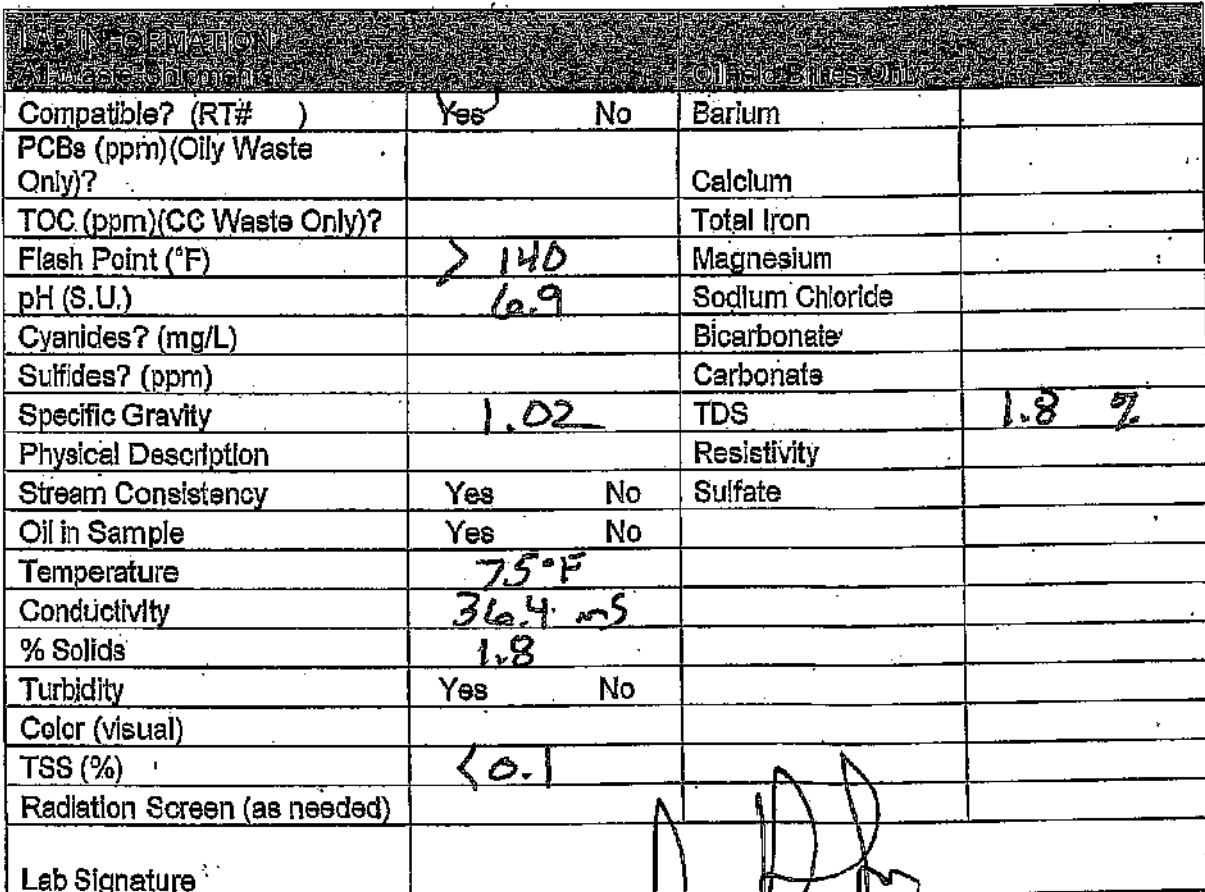 LAB INFORMATION
All Waste Shipments Oilfield Brines Only
Compatible? (RT# ) Yes No Barium
PCBs (ppm)(Oily Waste
Only)? Calcium
TOC (ppm)(CC Waste Only)? Total Iron
Flash Point (°F) > 140 Magnesium
pH (S.U.) 6.9 Sodium Chloride
Cyanides? (mg/L) Bicarbonate
Sulfides? (ppm) Carbonate
Specific Gravity 1.02 TDS 1.8 %
Physical Description Resistivity
Stream Consistency Yes No Sulfate
Oil in Sample Yes No
Temperature 75°F
Conductivity 36.4 mS
% Solids 1.8
Turbidity Yes No
Color (visual)
TSS (%) <0.1
Radiation Screen (as needed)
Lab Signature